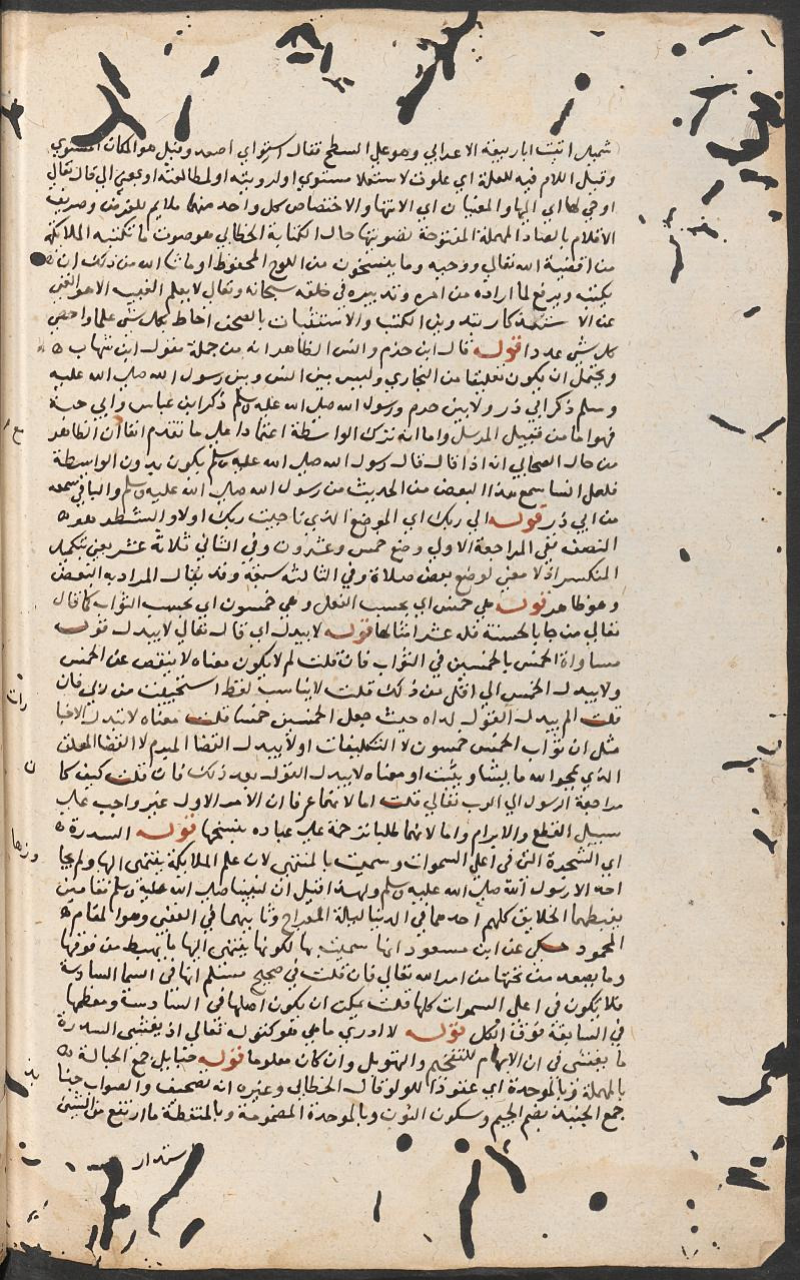 شميل اتيت ابا ربيعة الاعرابي وهو علي السطح فقال استوا اي اصعد وقيل هو المكان المستوي
وقيل اللام فيه للعلة اي علوت لاستعلا مستوي او لرويته او لمطالعته او بمعني الي قال تعالي
اوحي لها اي اليها والمعنيان اي الانتها والاختصاص كل واحد منهما ملايم للغرض وصريف
الاقلام بالصاد المهملة المفتوحة تصويتها حال الكتابة الخطابي هو صوت ما تكتبه الملايكة
من اقضية الله تعالي ووحيه وما ينسخون من اللوح المحفوظ او ما شا الله من ذلك ان
يكتب ويرفع لما اراده من امره وتدبيره في خلقه سبحانه وتعالي لا يعلم الغيب الا هو الغني
عن الاستذكار بتدوين الكتب والاستثبات بالصحف احاط بكل شي علما واحصي
كل شي عددا قوله قال ابن حزم وانس الظاهر انه من جملة مقول ابن شهاب
ويحتمل ان يكون تعليقا من البخاري وليس بين انس وبين رسول الله صلي الله عليه
وسلم ذكر ابي ذر ولا بين حزم ورسول الله صلي الله عليه وسلم ذكر ابن عباس وابي حبة
فهو اما من قبيل المرسل واما انه ترك الواسطة اعتمادا علي ما تقدم انفا ان الظاهر
من حال الصحابي انه اذا قال قال رسول الله صلي الله عليه وسلم يكون بدون الواسطة
فلعل انسا سمع هذا البعض من الحديث من رسول الله صلي الله عليه وسلم والباقي سمعه
من ابي ذر قوله الي ربك اي الموضع الذي ناجيت ربك اولا والشطر هو
النصف ففي المراجعة الاولي وضع خمس وعشرون وفي الثاني ثلاثة عشر يعني بتكميل
المنكسر اذ لا معني لوضع بعض صلاة وفي الثالثة سبعة وقد يقال المراد به البعض
وهو ظاهر قوله هي خمس اي بحسب الفعل وهي خمسون اي بحسب الثواب كما قال
تعالي من جا بالحسنة فله عشر امثالها قوله لا يبدل اي قال تعالي لا يبدل قول
مساواة الخمس بالخمسين في الثواب فان قلت لم لا يكون معناه لا ينقص عن الخمس
ولا يبدل الخمس الي اقل من ذلك قلت لا يناسب لفظ استحييت من ربي فان
قلت الم يبدل القول لداه حيث جعل الخمسين خمسا قلت معناه لا تبدل الاخبا
مثل ان ثواب الخمس خمسون لا التكليفات او لا يبدل القضا المبرم لا القضا المعلق
الذي يمحو الله ما يشا ويثبت او معناه لا يبدل القول بعد ذلك فان قلت كيف كا
مراجعة الرسول الي الرب تعالي قلت اما لانهما عرفا ان الامر الاول غير واجب علي
سبيل القطع والابرام واما لانهما طلبا ترحمة علي عباده بنسخها قوله السدرة
اي الشجرة التي في اعلي السموات وسميت بالمنتهي لان علم الملايكة ينتهي اليها ولم يجا
احد الا رسول الله صلي الله عليه وسلم ولهذا قيل ان لنبينا صلي الله عليه وسلم مقامين
يغبطهما الخلايق كلهم احدهما في الدنيا ليلة المعراج وثانيهما في العقبي وهو المقام
المحمود حكي عن ابن مسعود انها سميت بها لكونها ينتهي اليها ما يهبط من فوقها
وما يصعد من تحتها من امر الله تعالي فان قلت في صحيح مسلم انها في السما السادسة
فلا يكون في اعلي السموات كلها قلت يمكن ان يكون اصلها في السادسة ومعظمها
في السابعة فوق الكل قوله لا ادري ما هي هو كقوله تعالي اذ يغشي السدرة
ما يغشي في ان الابهام للتفخيم والتهويل وان كان معلوما قوله حبايل جمع الحبالة
بالمهملة وبالموحدة اي عقود اللولو قال الخطابي وغيره انه تصحيف والصواب جنا
جمع الجنبذ بضم الجيم وسكون النون وبالموحدة المضمومة وبالمنقطة ما ارتفع من الشي